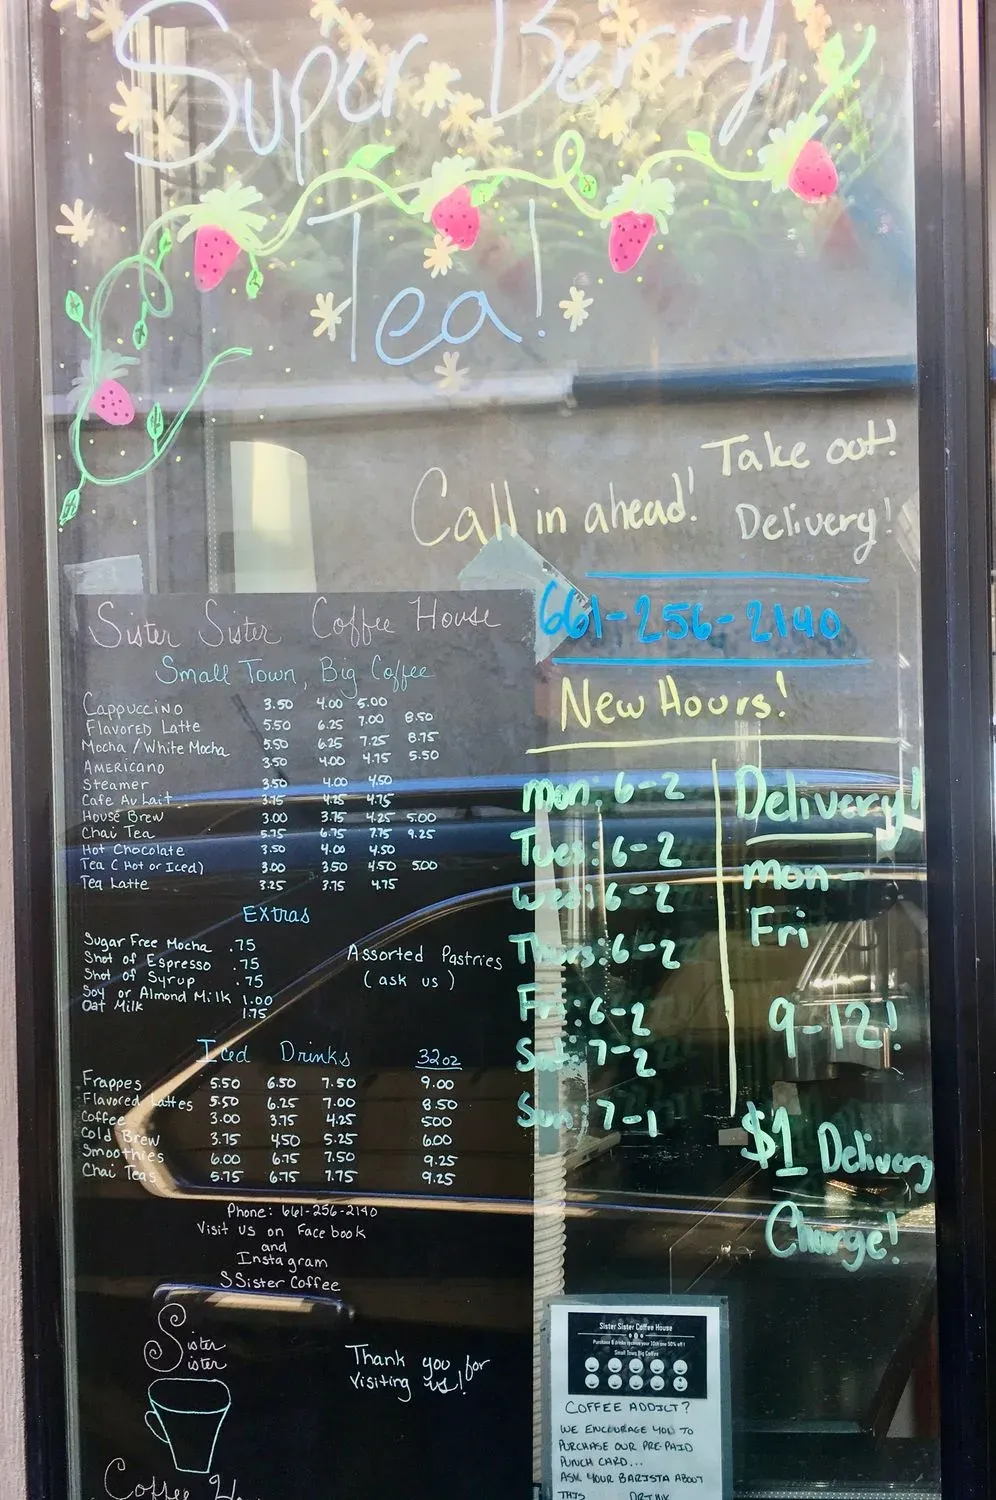 Super Berry
Tea!
Take out!
Call in ahead!
Delivery!
661-256-2140
Sister Sister Coffee House
Small Town, Big Coffee
Cappuccino 3.50 4.00 5.00
Flavored Latte 5.50 6.25 7.00 8.50
Mocha/White Mocha 5.50 6.25 7.25 8.75
Americano 3.50 4.00 4.75 5.50
Steamer 3.50 4.00 4.50
Cafe Au Lait 3.75 4.25 4.75
House Brew 3.00 3.75 4.25 5.00
Chai Tea 5.75 6.75 7.75 9.25
Hot Chocolate 3.50 4.00 4.50
Tea (Hot or Iced) 3.00 3.50 4.50 5.00
Tea Latte 3.25 3.75 4.75
Extras
Sugar Free Mocha .75
Shot of Espresso .75
Shot of Syrup .75
Soy or Almond Milk 1.00
Oat Milk 1.75
Assorted Pastries
(ask us)
Iced Drinks 32oz
Frappes 5.50 6.50 7.50 9.00
Flavored Lattes 5.50 6.25 7.00 8.50
Coffee 3.00 3.75 4.25 500
Cold Brew 3.75 4.50 5.25 6.00
Smoothies 6.00 6.75 7.50 9.25
Chai Teas 5.75 6.75 7.75 9.25
Phone: 661-256-2140
Visit us on Facebook
and
Instagram
SSister Coffee
Sister
Sister
Coffee
Thank you for
visiting us!
New Hours!
Mon: 6-2
Tues: 6-2
Wed: 6-2
Thurs: 6-2
Fri: 6-2
Sat: 7-2
Sun: 7-1
Delivery!
Mon-
Fri
9-12!
$1 Delivery
Charge!
Sister Sister Coffee House
Small Town Big Coffee
COFFEE ADDICT?
WE ENCOURAGE YOU TO
PURCHASE OUR PRE-PAID
PUNCH CARD...
ASK YOUR BARISTA ABOUT
THIS DRINK